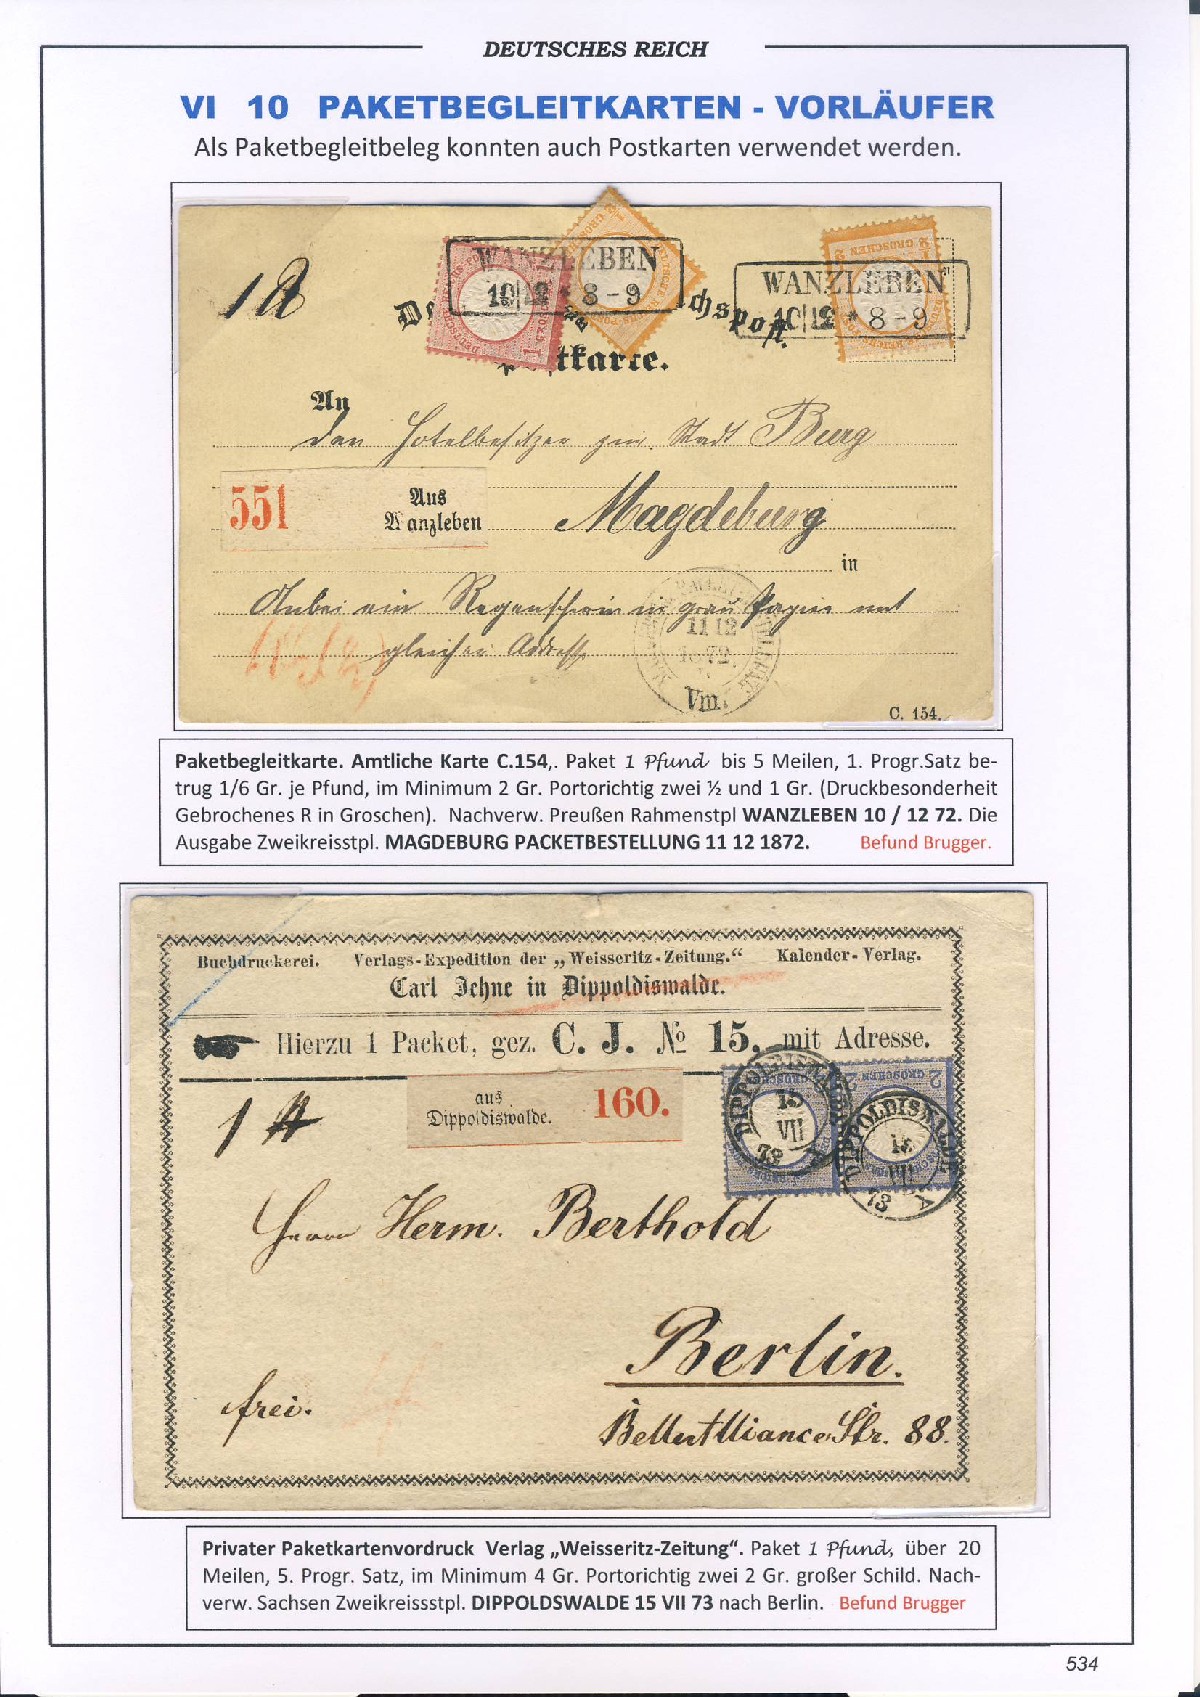 DEUTSCHES REICH
VI 10 PAKETBEGLEITKARTEN - VORLÄUFER
Als Paketbegleitbeleg konnten auch Postkarten verwendet werden.
WANZLEBEN
10|12 * 8-9
WANZLEBEN
10|12 * 8-9
1
De chspost.
Postkarte.
An
den Hotelbesitzer zur Stadt Burg
551
Aus
Wanzleben
Magdeburg
in
Anbei ein Regenschirm in grau Papier mit
gleicher Adresse
11 12
1872.
Vm.
C. 154.
Paketbegleitkarte. Amtliche Karte C.154,. Paket 1 Pfund bis 5 Meilen, 1. Progr.Satz be-
trug 1/6 Gr. je Pfund, im Minimum 2 Gr. Portorichtig zwei ½ und 1 Gr. (Druckbesonderheit
Gebrochenes R in Groschen). Nachverw. Preußen Rahmenstpl WANZLEBEN 10 / 12 72. Die
Ausgabe Zweikreisstpl. MAGDEBURG PACKETBESTELLUNG 11 12 1872. Befund Brugger.
Buchdruckerei. Verlags-Expedition der „Weisseritz-Zeitung.“ Kalender-Verlag.
Carl Jehne in Dippoldiswalde.
Hierzu 1 Packet, gez. C. J. № 15. mit Adresse.
aus
Dippoldiswalde.
160.
2 GROSCHEN
DIPPOLDISWALDE
15
VII
73
DIPPOLDISWALDE
15
VII
73
X
1
Herrn Herm. Berthold
Berlin.
frei.
BelleAlliance Str. 88.
Privater Paketkartenvordruck Verlag „Weisseritz-Zeitung“. Paket 1 Pfund, über 20
Meilen, 5. Progr. Satz, im Minimum 4 Gr. Portorichtig zwei 2 Gr. großer Schild. Nach-
verw. Sachsen Zweikreissstpl. DIPPOLDSWALDE 15 VII 73 nach Berlin. Befund Brugger
534